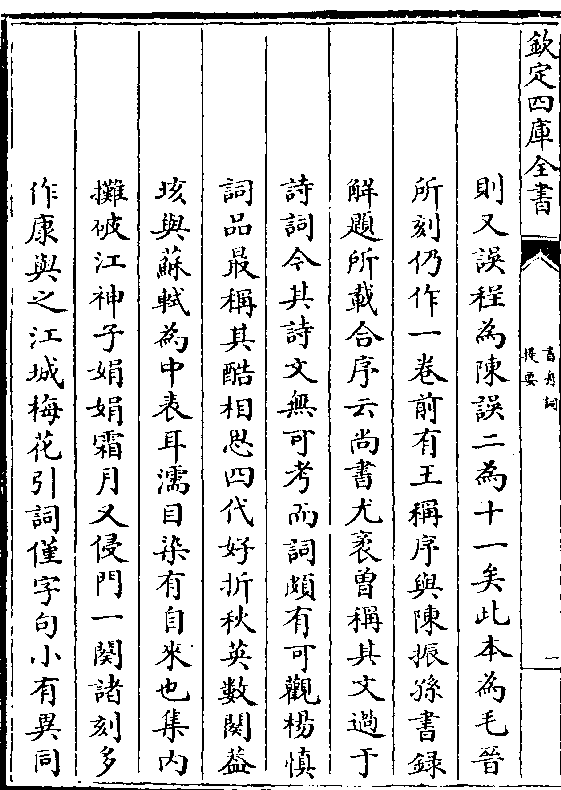 欽定四庫全書
書舟詞
提要
一
則又誤程為陳誤二為十一矣此本為毛晉
所刻仍作一卷前有王稱序與陳振孫書録
解題所載合序云尚書尤袤曽稱其文過于
詩詞今其詩文無可考而詞頗有可觀楊慎
詞品最稱其酷相思四代好折秋英數闋葢
垓與蘇軾為中表耳濡目染有自來也集内
攤破江神子娟娟霜月又侵門一闋諸刻多
作康與之江城梅花引詞僅字句小有異同